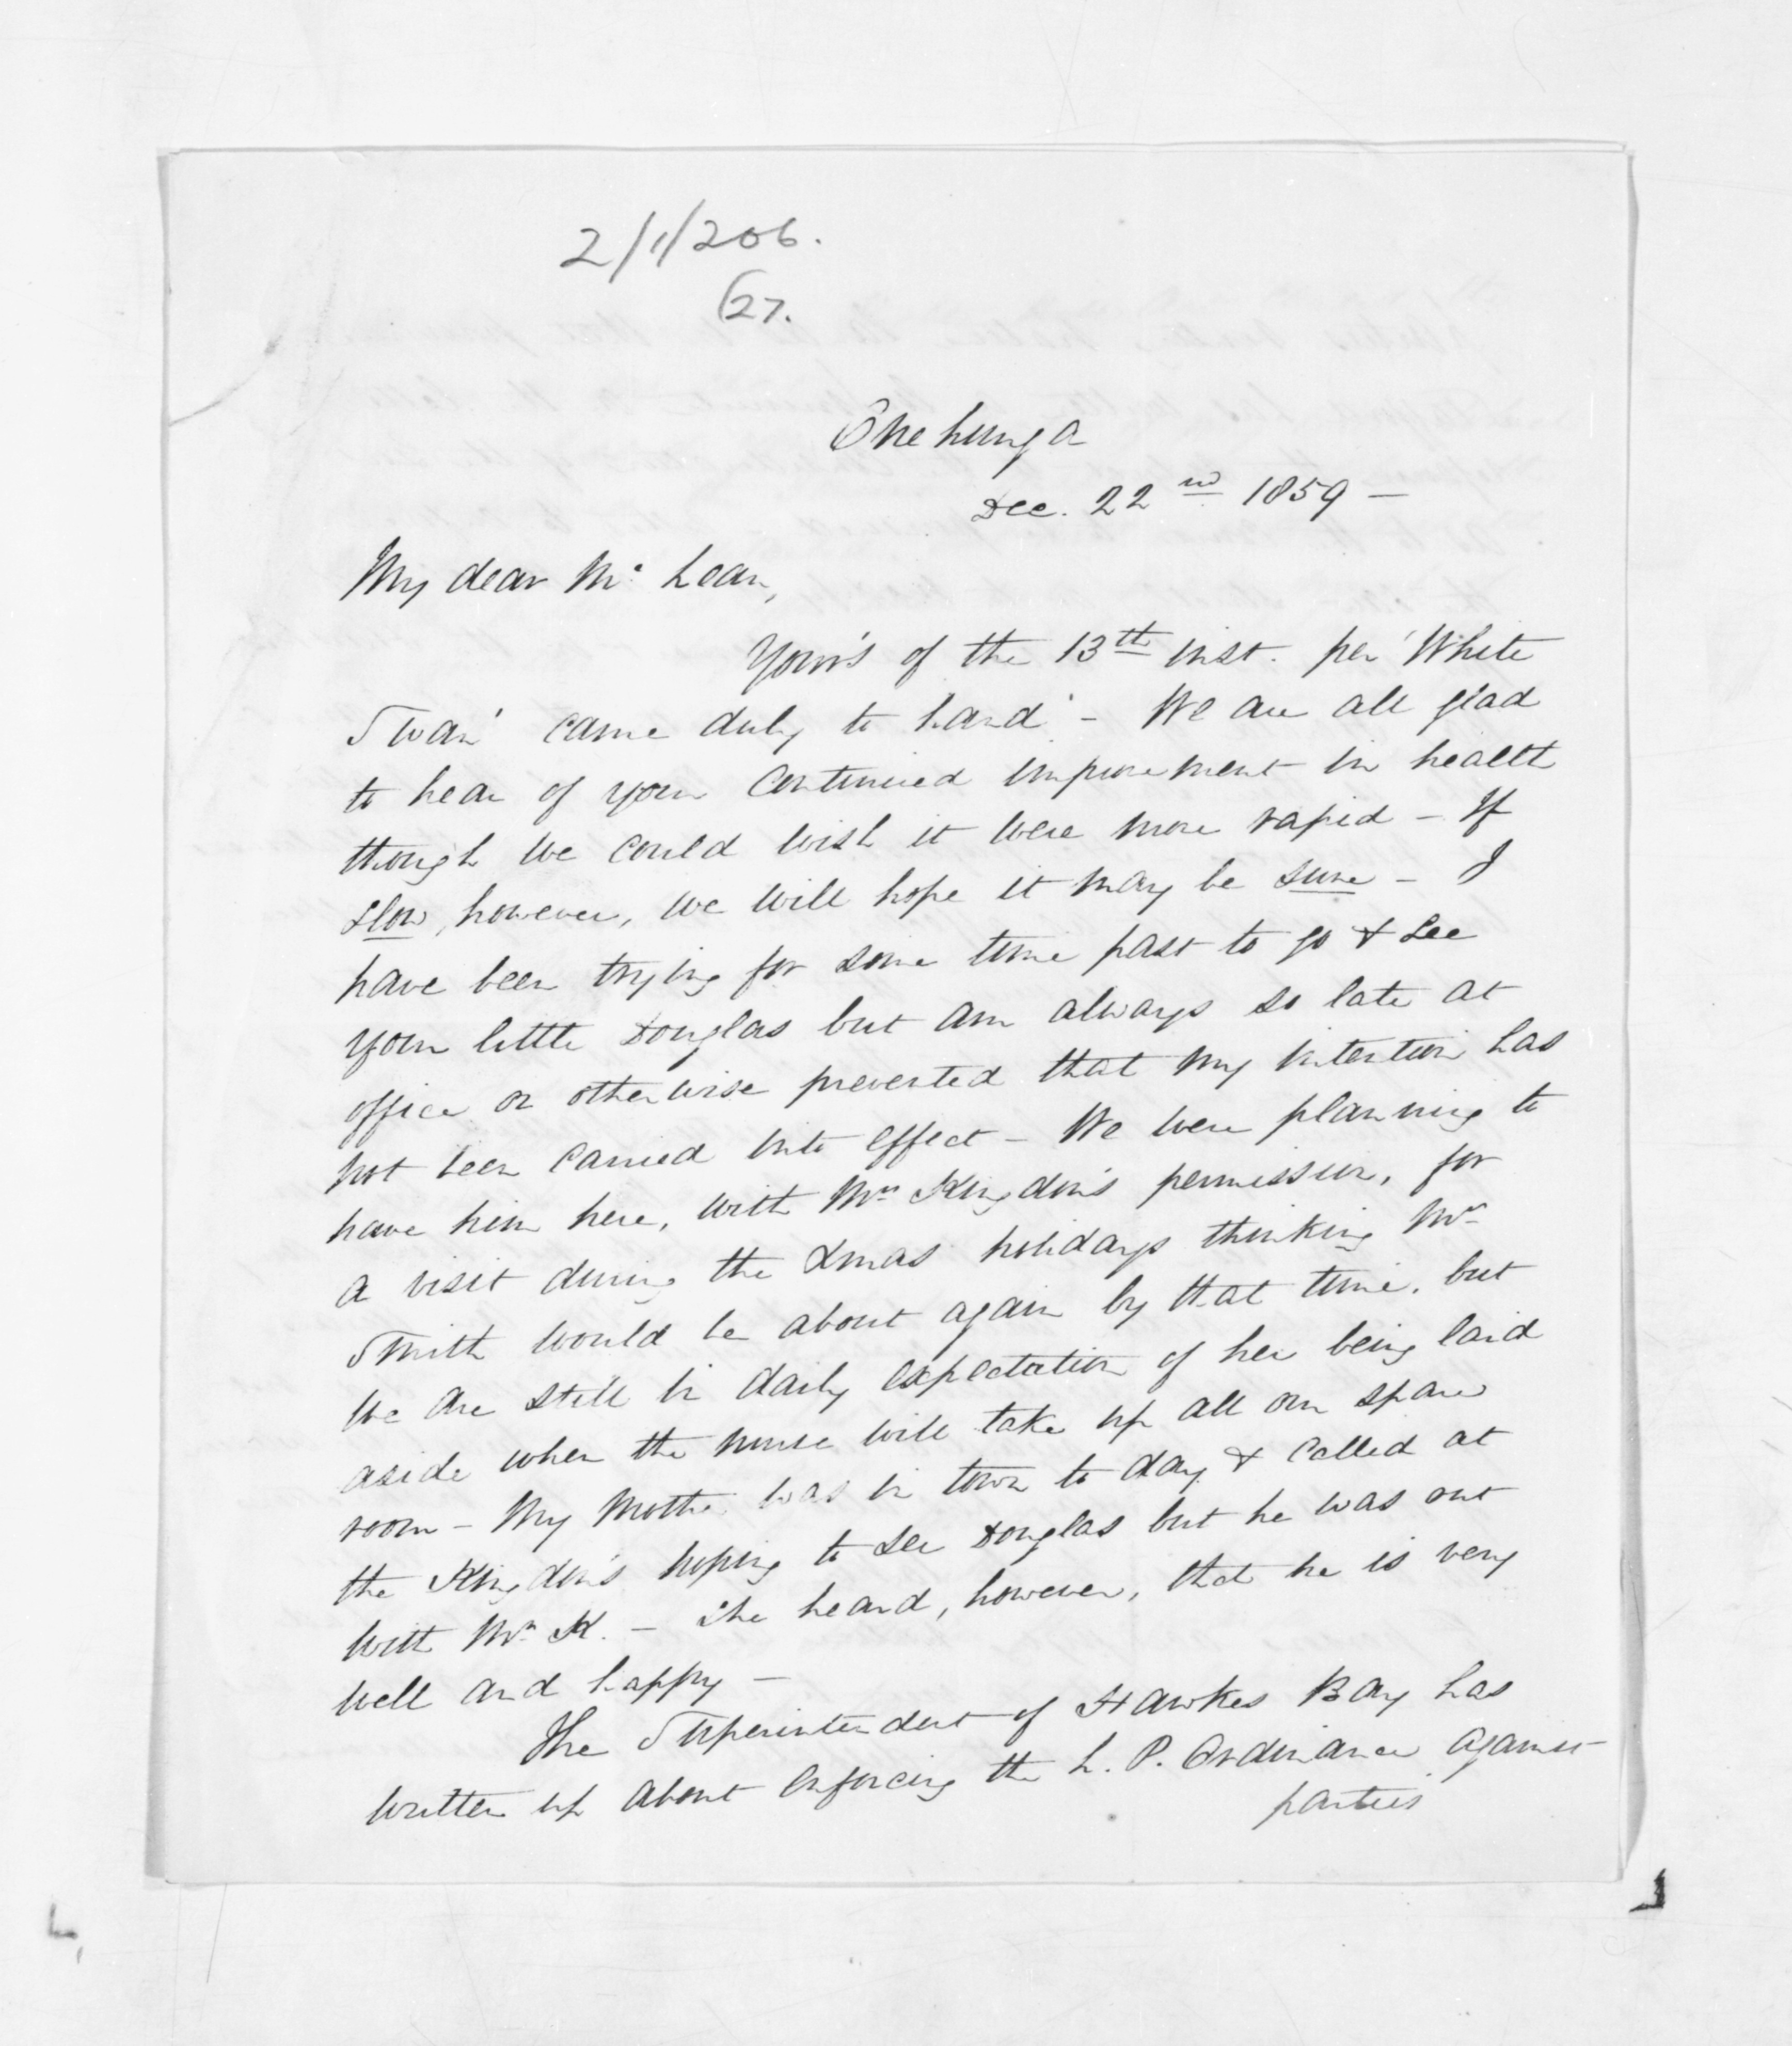 2/1/206.
(27.
Onehunga
Dec. 22nd 1859 —
My dear Mc Lean,
Your's of the 13th inst. per 'White
Swan' came duly to hand - We are all glad
to hear of your continued improvement in health
though we could wish it were more rapid - If
slow, however, we will hope it may be sure - I
have been trying for some time past to go & see
your little Douglas but am always so late at
office or otherwise prevented that my intention has
not been carried into effect - We were planning to
have him here, with Mrs Kingdon's permission, for
a visit during the Xmas holidays thinking Mrs
Smith would be about again by that time, but
we are still in daily expectation of her being laid
aside when the nurse will take up all our spare
room - My Mother was in town to day & called at
the Kingdon's hoping to see Douglas but he was out
with Mrs K. - She heard, however, that he is very
well and happy -
The Superintendent of Hawkes Bay has
written up about enforcing the L. P. Ordinance against
parties